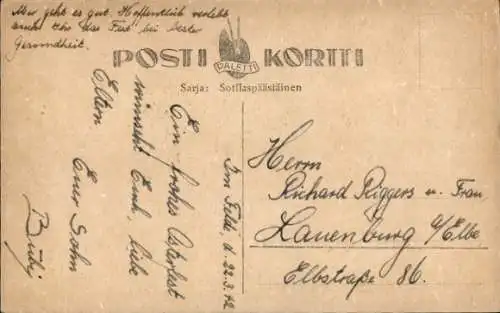 Mir geht es gut. Hoffentlich verlebt
auch Ihr das Fest bei bester
Gesundheit.
POSTI KORTTI
PALETTI
Sarja: Sotilaspäästäinen
Im Felde, d. 22.3.42
Ein frohes Osterfest
wünscht Euch, liebe
Eltern
Euer Sohn
Rudi
Herrn
Richard Riggers u. Frau
Lauenburg a/Elbe
Elbstraße 86.